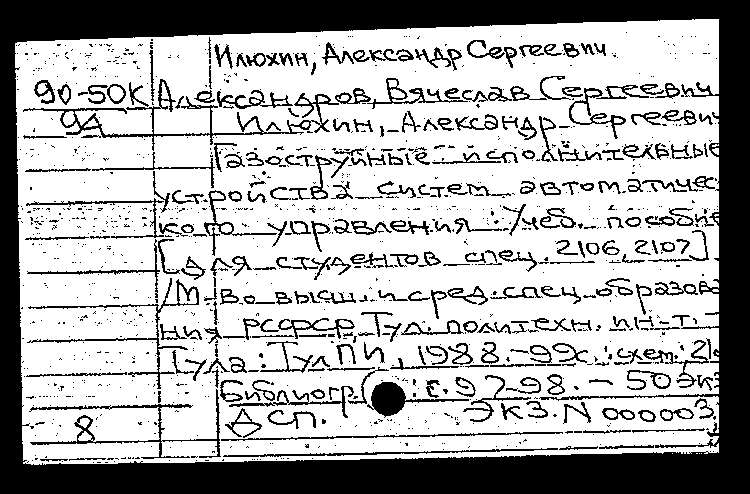 Илюхин, Александр Сергеевич.
90-50К Александров, Вячеслав Сергеевич
94 Илюхин, Александр Сергеевич
Газоструйные исполнительные
устройства систем автоматичес
кого управления : Учеб. пособие
[Для студентов спец. 2106, 2107]
/М-во высш. и сред. спец. образова
ния РСФСР, Тул. политехн. ин-т. -
Тула : ТулПИ, 1988. - 99с. : схем. ; 21
Библиогр. : с. 97-98. - 50 экз
8 ДСП. ЭКЗ. N 000003